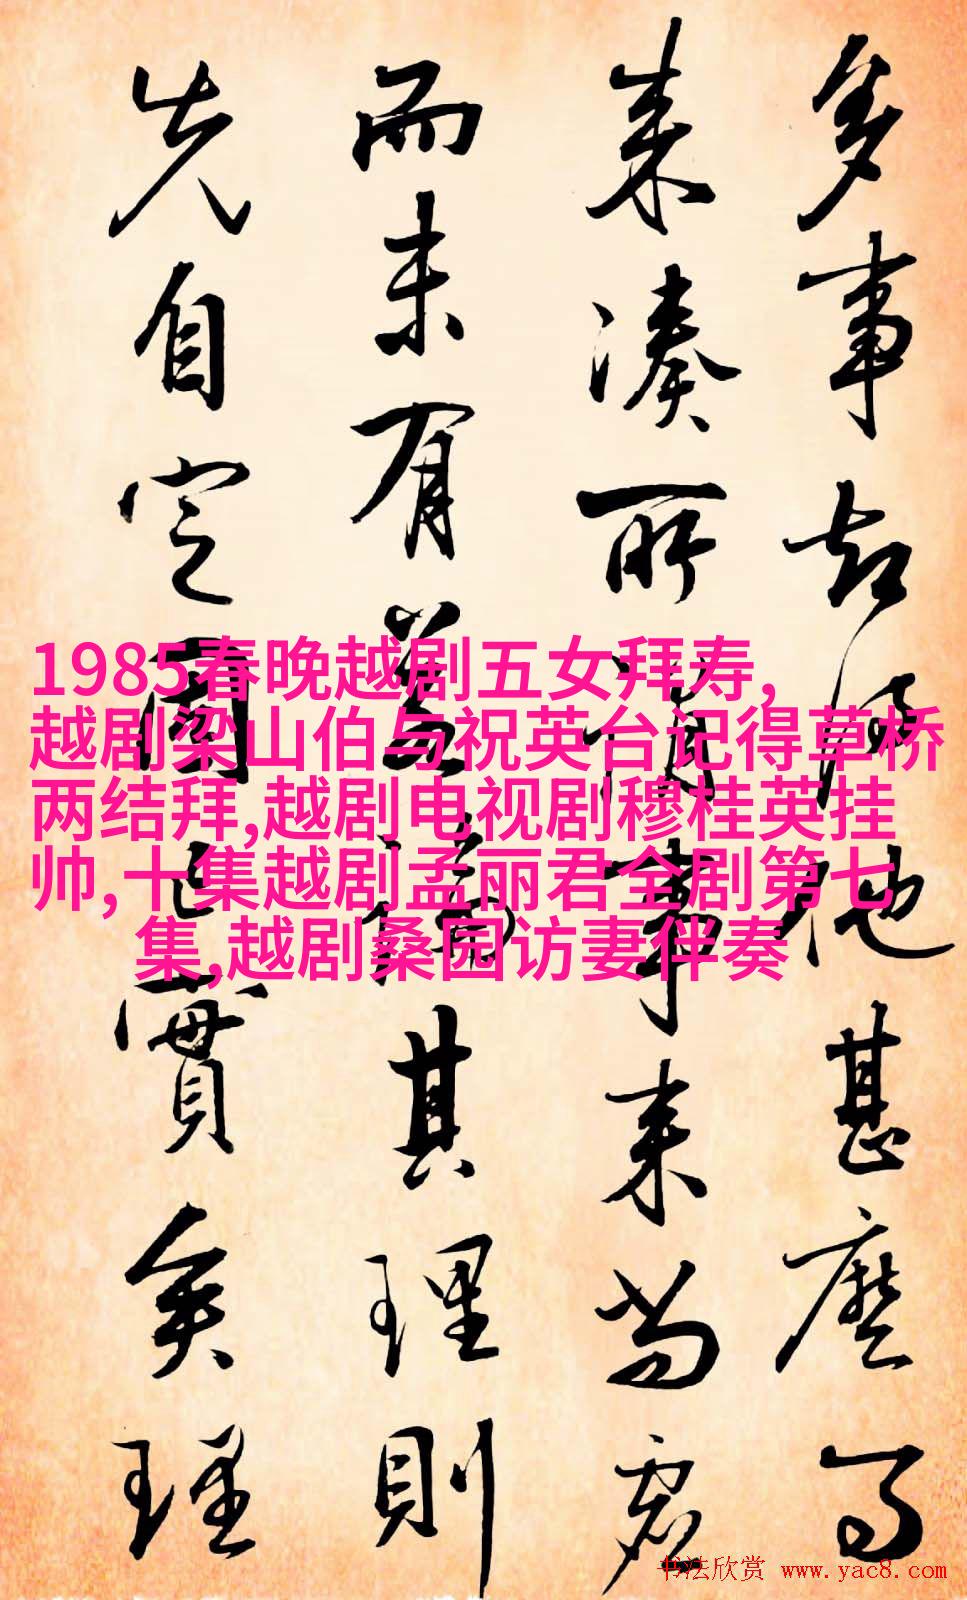 1985春晚越剧五女拜寿,
越剧梁山伯与祝英台记得草桥
两结拜,越剧电视剧穆桂英挂
帅,十集越剧孟丽君全剧第七
集,越剧桑园访妻伴奏
多事却他甚麼
来湊所谓事来
而未有其理則
先自定固已實矣理
书法欣赏 www.yac8.com